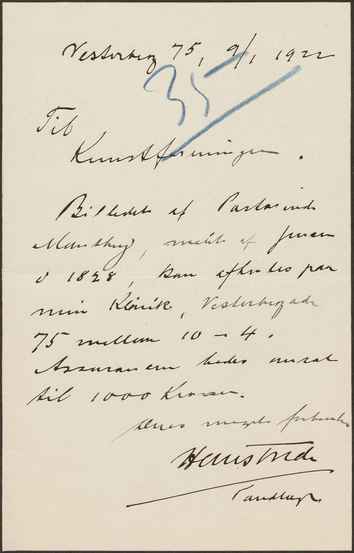 Vesterbrog 75, 9/1 1922
35
Til
Kunstforeningen.
Billedet af Pastorinde
malt af Jensen
i 1828, kan afhentes paa
min Klinik, Vesterbrogade
75 mellem 10 - 4.
Assurancen bedes ansat
til 1000 Kroner.
Deres meget forbundne
Tandlæge